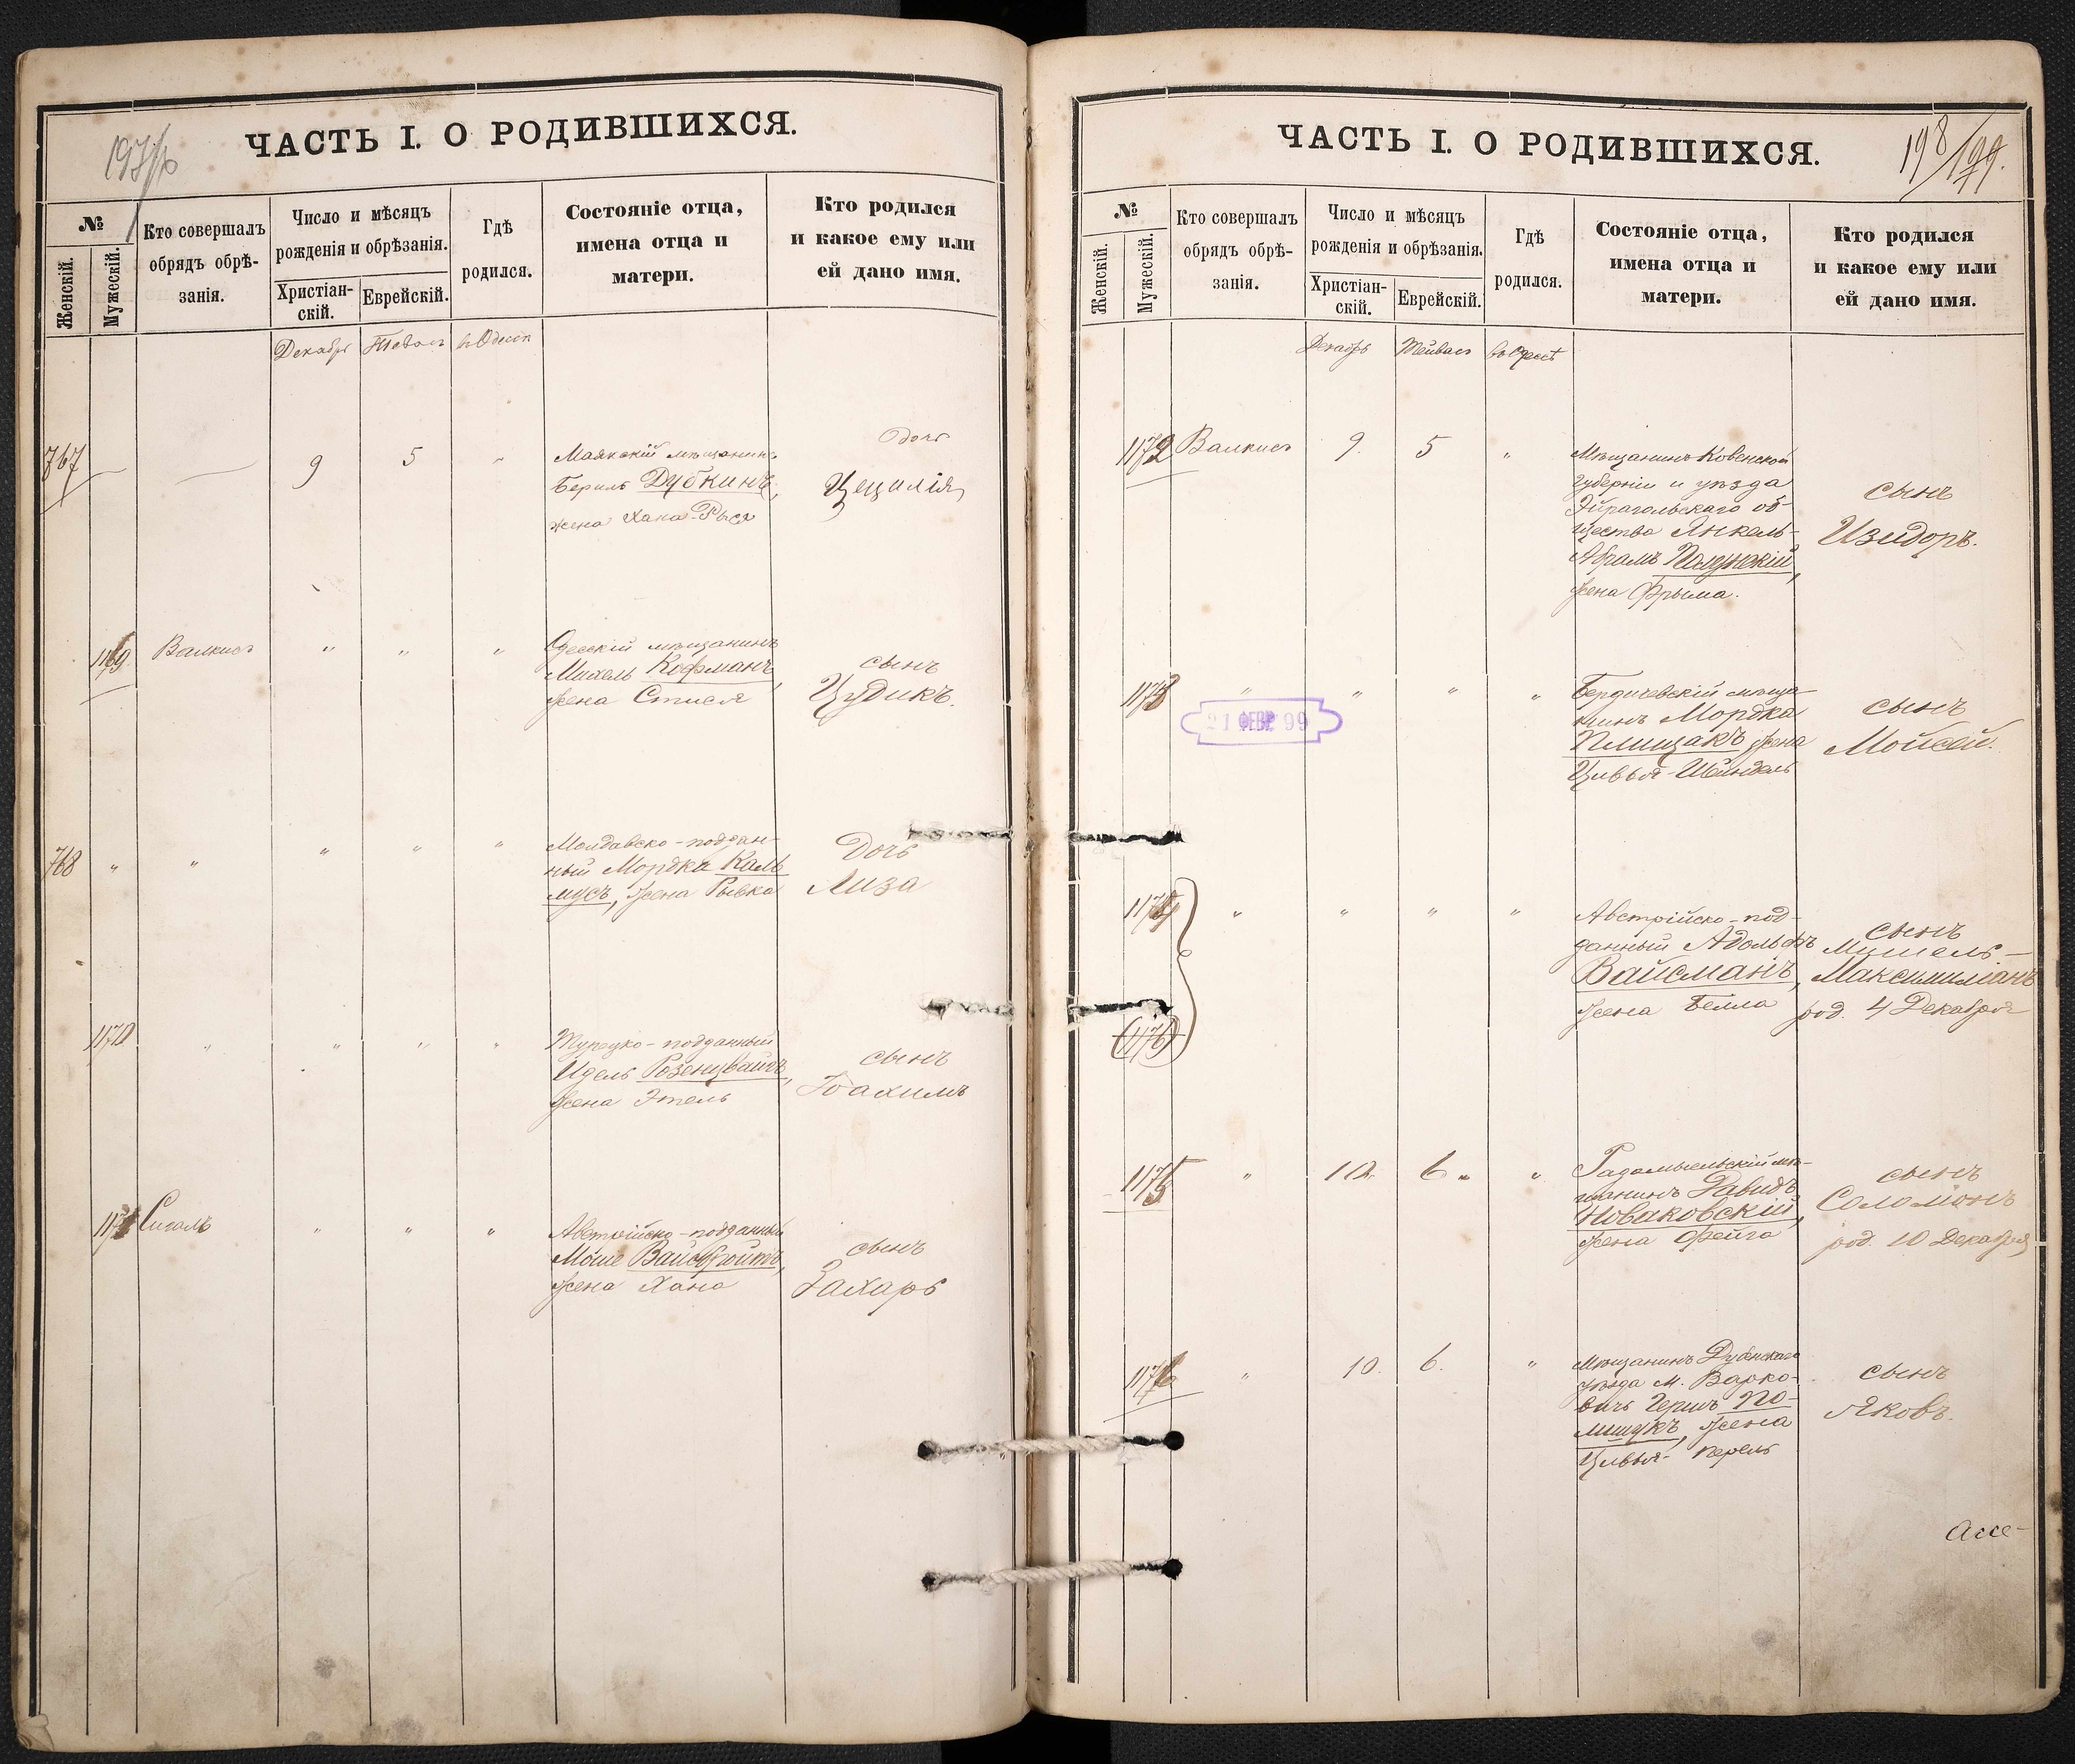 ЧАСТЬ I. О РОДИВШИХСЯ.
№
Женскій.
Мужескій.
Кто совершалъ
обрядъ обрѣ-
занія.
Число и мѣсяцъ
рожденія и обрѣзанія.
Христіан-
скій.
Еврейскій.
Гдѣ
родился.
Состояніе отца,
имена отца и
матери.
Кто родился
и какое ему или
ей дано имя.
Декабрь
767
9
5
Маякскій мѣщанинъ
Бериль Дубкинъ,
жена Хана-Рыся
Дочь
Цецилія
1169
Валкисъ
"
"
"
Одесскій мѣщанинъ
Михель Кофманъ,
жена
сынъ
Цудикъ.
768
"
"
"
"
"
Молдавско-поддан-
ный Мордка Каль
мусъ, жена Рывка
Дочь
Лиза
1170
"
"
"
"
Турецко-подданный
Идель Розенцвайгъ,
жена Этель
сынъ
Іоахимъ
1171
Сигалъ
"
"
"
Австрійско-подданный
Моше
жена Хана
сынъ
Захарь
ЧАСТЬ I. О РОДИВШИХСЯ.
198/199.
№
Женскій.
Мужескій.
Кто совершалъ
обрядъ обрѣ-
занія.
Число и мѣсяцъ
рожденія и обрѣзанія.
Христіан-
скій.
Еврейскій.
Гдѣ
родился.
Состояніе отца,
имена отца и
матери.
Кто родился
и какое ему или
ей дано имя.
Декабрь
Тейвасъ
въ Одессѣ
1172
Валкисъ
9.
5
"
Мѣщанинъ Ковенской
губерніи и уѣзда
Эйрагольскаго об-
щества Янкель-
Абрамъ
жена Фрыма.
сынъ
Изидоръ.
1173
"
21 ФЕВР 99
"
"
"
Бердичевскій мѣща-
нинъ Мордка
Плищакъ жена
Цивья-Шейндель
сынъ
Мойсей.
1174
"
"
"
"
Австрійско-под-
данный Адольфъ
Вайсманъ,
жена Белла
сынъ
Мишель-
Максимиліанъ
род. 4 Декабря
1175
"
10.
6
"
Радомысльскій мѣ-
щанинъ Давидъ
Новаковскій,
жена Фейга
сынъ
Соломонъ
род. 10 Декабря
1176
"
10.
6.
"
Мѣщанинъ Дубенскаго
уѣзда м. Варко-
вичъ Гершъ По-
лищукъ, жена
Цивья-Перель
сынъ
Яковъ.